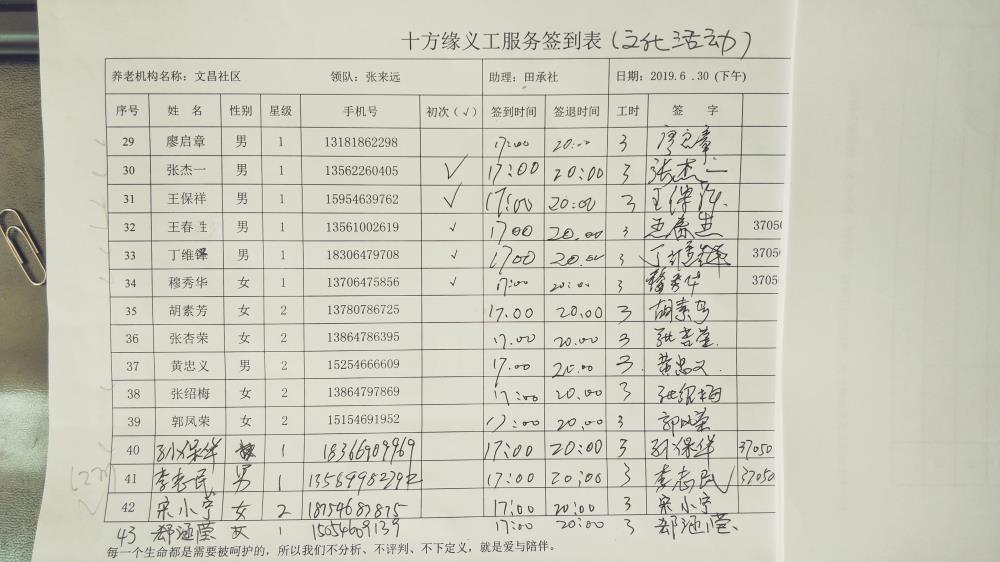 十方缘义工服务签到表(文化活动)
养老机构名称：文昌社区 领队：张来远 助理：田承社 日期：2019.6.30(下午)
序号 姓 名 性别 星级 手机号 初次(√) 签到时间 签退时间 工时 签 字
29 廖启章 男 1 13181862298 17:00 20:00 3 廖启章
30 张杰一 男 1 13562260405 √ 17:00 20:00 3 张杰一
31 王保祥 男 1 15954639762 √ 17:00 20:00 3 王保祥
32 王春生 男 1 13561002619 √ 1700 20.00 3 37050
33 丁维 男 1 18306479708 √ 1700 20.00 3 37050
34 穆秀华 女 1 13706475856 √ 17:00 20:00 3 穆秀华 37050
35 胡素芳 女 2 13780786725 17.00 20.00 3 胡素芳
36 张杏荣 女 2 13864786395 17.00 20.00 3
37 黄忠义 男 2 15254666609 17.00 20.00 3 黄忠义
38 张绍梅 女 2 13864797869 17:00 20:00 3 张绍梅
39 郭凤荣 女 2 15154691952 17:00 20.00 3 郭凤荣
40 孙保华 1 18366909969 17:00 20:00 3 孙保华 37050
41 李志民 男 1 17:00 20:00 3 李志民 37050
42 宋小宁 女 2 18754687875 17:00 20:00 3 宋小宁
43 郄涵莹 女 1 15054609139 17:00 20:00 3 郄涵莹
每一个生命都是需要被呵护的，所以我们不分析、不评判、不下定义，就是爱与陪伴。